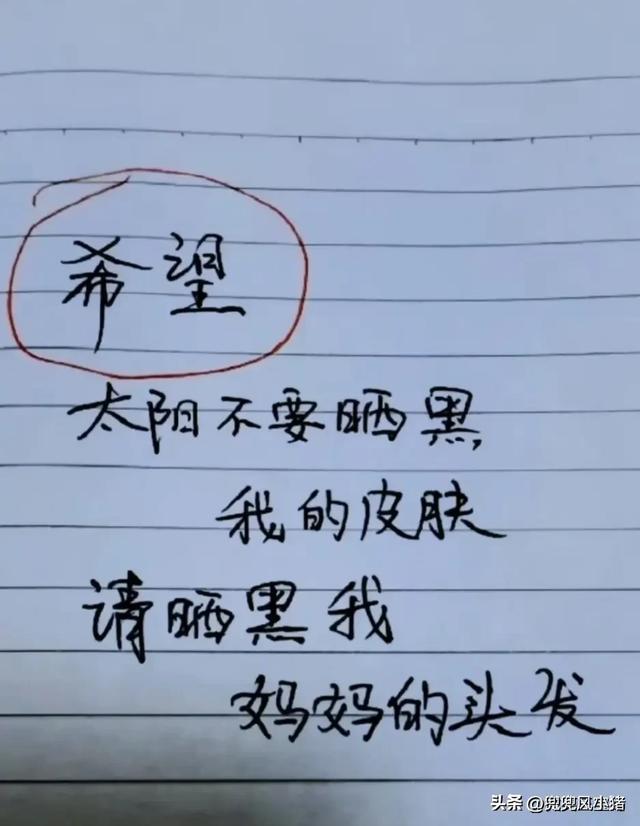 希望
太阳不要晒黑
我的皮肤
请晒黑我
妈妈的头发
头条 @兜兜风小猪